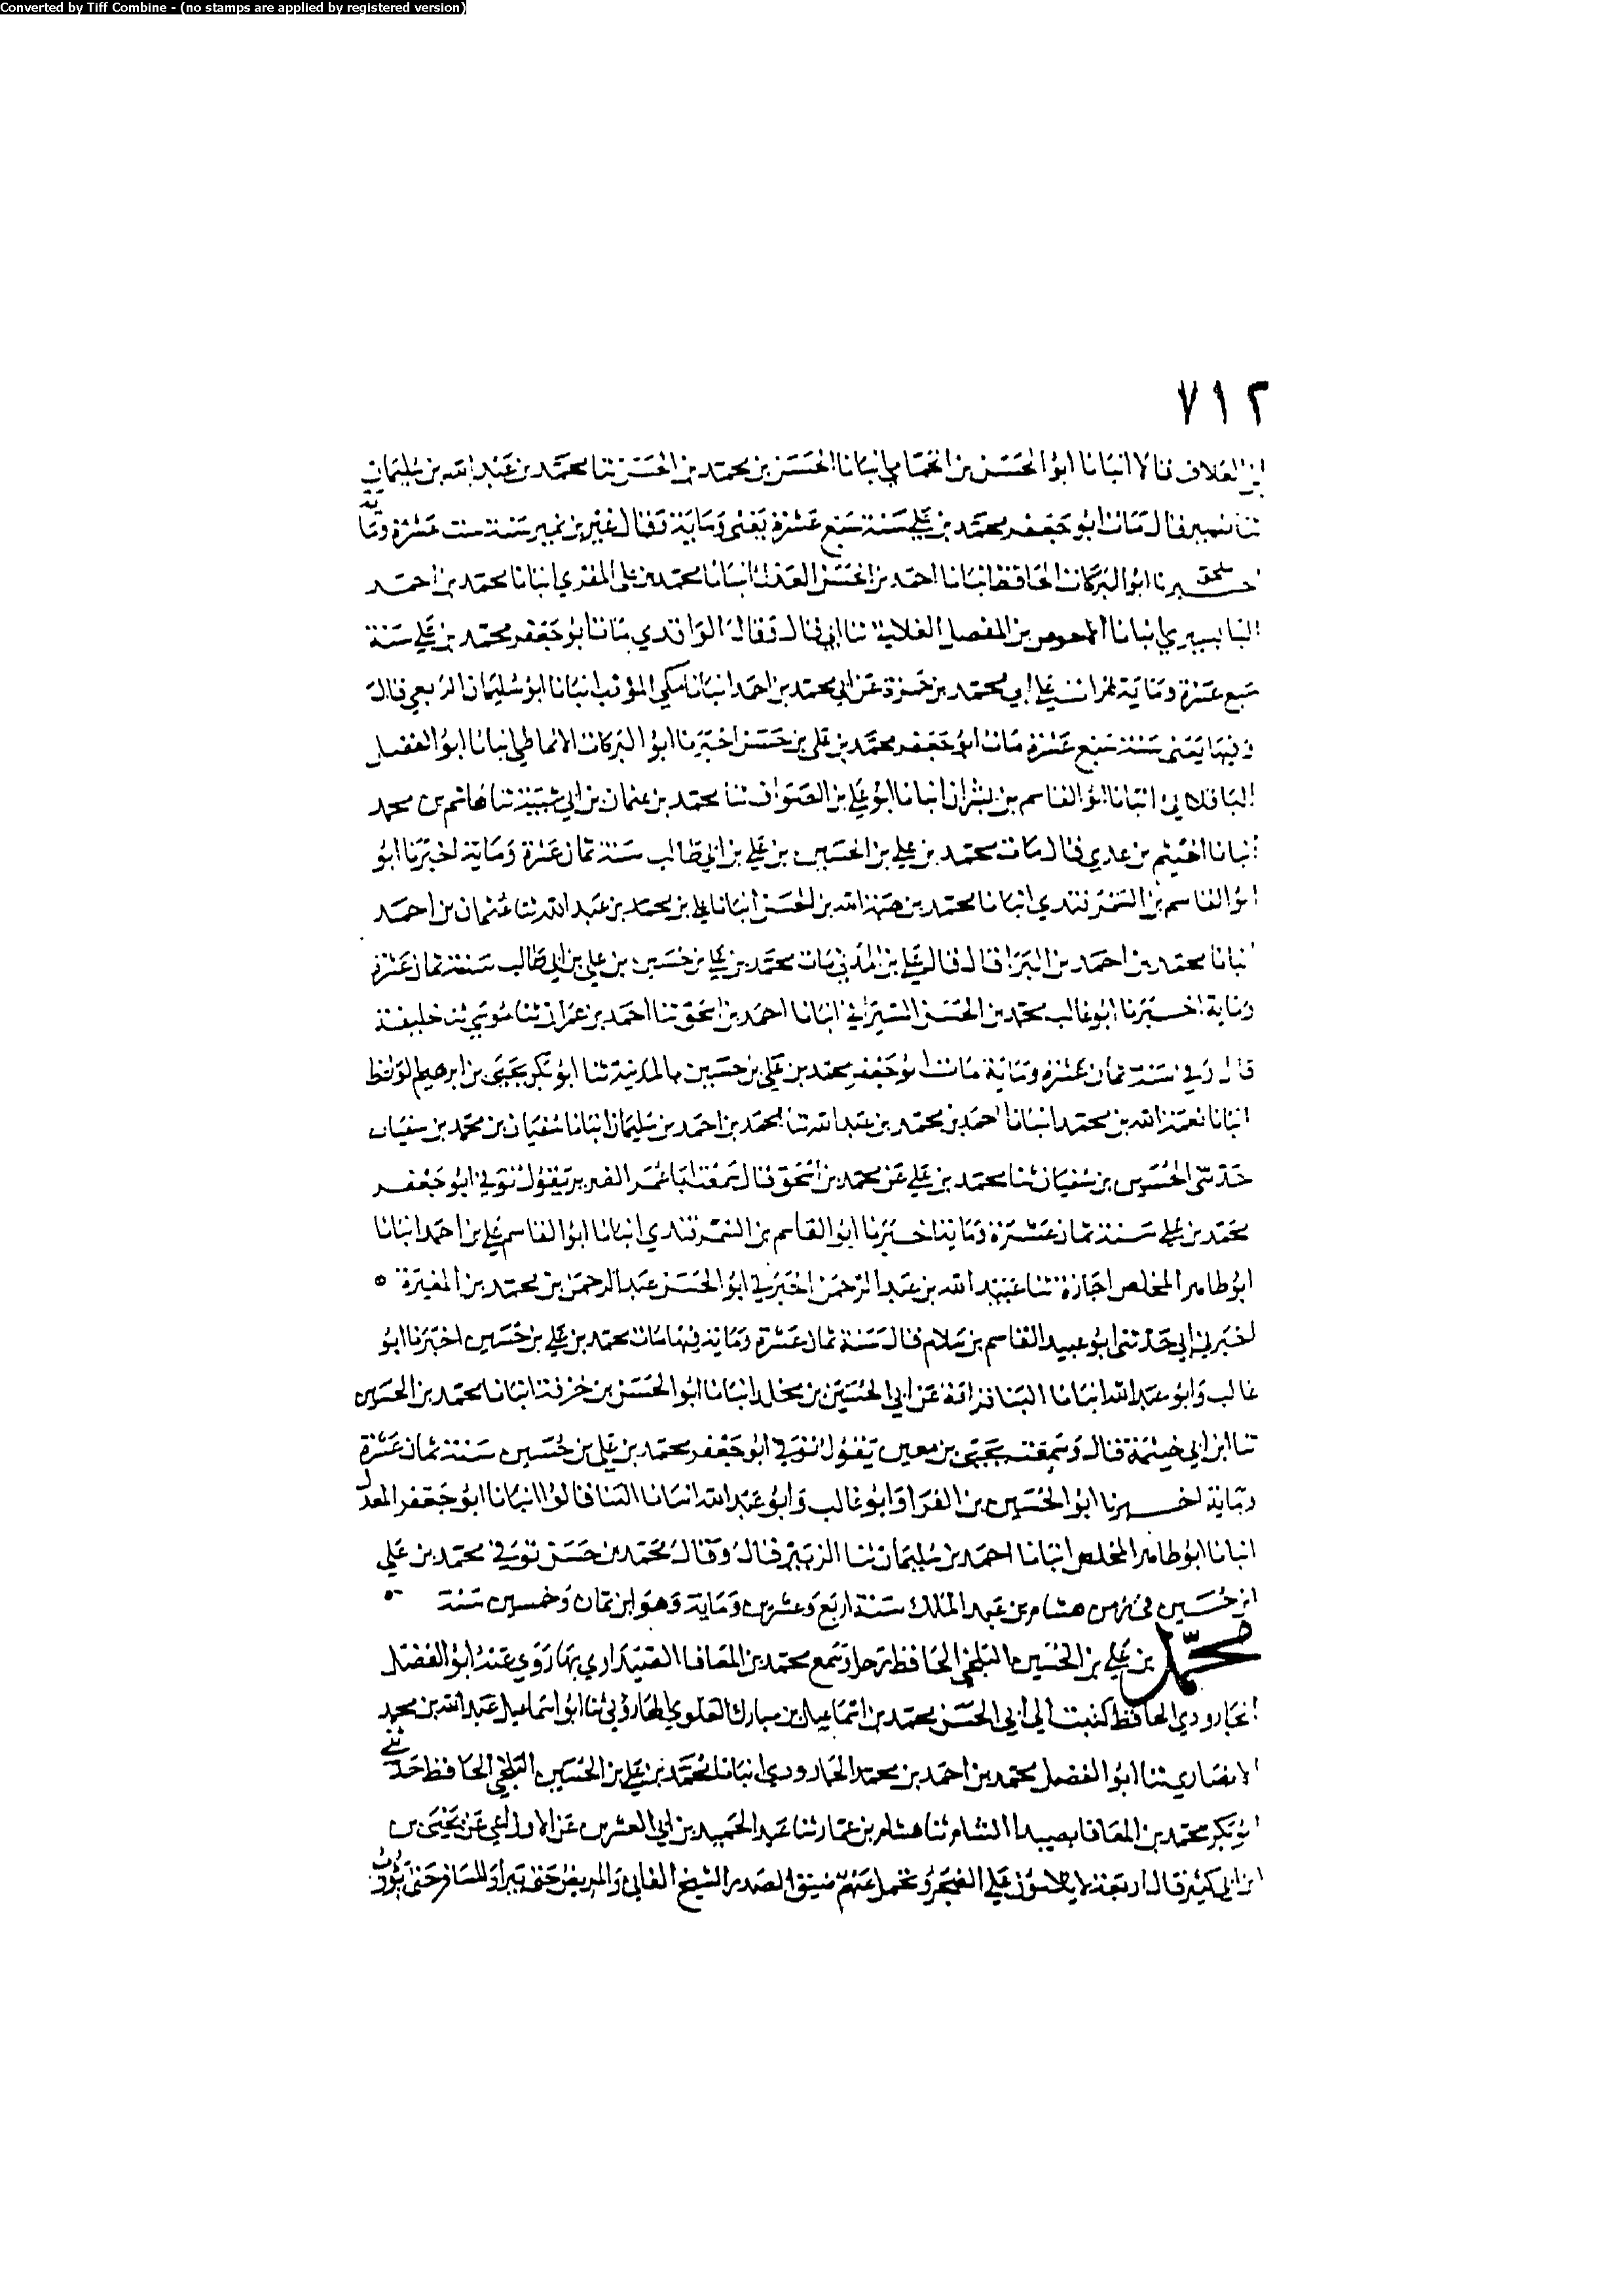 Converted by Tiff Combine - (no stamps are applied by registered version)
٧١٢
ابن العلاف قالا انبانا ابو الحسن بن الحمامي انبانا الحسن بن محمد بن الحسن ثنا محمد بن عبد الله بن سليمان
ثنا نمير قال مات ابو جعفر محمد بن علي سنة سبع عشرة يعني وماية وقال غير بن نمير سنة ست عشرة وماية
اخبرنا ابو البركات الحافظ انبانا احمد بن الحسن العدل انبانا محمد بن علي المقري انبانا محمد بن احمد
البابسيري انبانا الاحوص بن المفضل الغلابي ثنا ابي قال وقال الواقدي مات ابو جعفر محمد بن علي سنة
سبع عشرة وماية قرات علي ابي محمد بن حمزة عن ابي محمد بن احمد انبانا مكي المؤدب انبانا ابو سليمان الربعي قال
وفيها يعني سنة سبع عشرة مات ابو جعفر محمد بن علي بن حسن اخبرنا ابو البركات الانماطي انبانا ابو الفضل
الباقلاني انبانا ابو القاسم بن بشران انبانا ابو علي بن الصواف ثنا محمد بن عثمان بن ابي شيبة ثنا هاشم بن محمد
انبانا الهيثم بن عدي قال مات محمد بن علي بن الحسين بن علي بن ابي طالب سنة ثمان عشرة وماية اخبرنا ابو
ابو القاسم بن السمرقندي انبانا محمد بن هبة الله بن الحسن انبانا علي بن محمد بن عبد الله ثنا عثمان بن احمد
انبانا محمد بن احمد بن البرا قال قال علي بن المديني مات محمد بن علي بن حسين بن علي بن ابي طالب سنة ثمان عشرة
وماية اخبرنا ابو غالب محمد بن الحسن السيرافي انبانا احمد بن اسحق ثنا احمد بن عمران ثنا موسي ثنا خليفة
قال وفي سنة ثمان عشرة وماية مات ابو جعفر محمد بن علي بن حسين بالمدينة ثنا ابو بكر يحيى بن ابرهيم الواعظ
انبانا نعمة الله بن محمد انبانا احمد بن محمد بن عبد الله ثنا محمد بن احمد بن سليمان انبانا سفيان بن محمد بن سفيان
حدثني الحسن بن سفيان ثنا محمد بن علي عن محمد بن اسحق قال سمعت ابا عمر الضرير يقول توفي ابو جعفر
محمد بن علي سنة ثمان عشرة وماية اخبرنا ابو القاسم بن السمرقندي انبانا ابو القاسم علي بن احمد انبانا
ابو طاهر المخلص اجازة ثنا عبيد الله بن عبد الرحمن اخبرني ابو الحسن عبد الرحمن بن محمد بن المغيرة
اخبرني ابي حدثني ابو عبيد القاسم بن سلام قال سنة ثمان عشرة وماية فيها مات محمد بن علي بن حسين اخبرنا ابو
غالب وابو عبد الله انبانا البنا قراة عن ابي الحسين بن مخلد انبانا ابو الحسن بن خزفة انبانا محمد بن الحسين
ثنا ابن ابي خيثمة قال وسمعت يحيى بن معين يقول توفي ابو جعفر محمد بن علي بن حسين سنة ثمان عشرة
وماية اخبرنا ابو الحسين بن الفرا وابو غالب وابو عبد الله انبانا البنا قالوا انبانا ابو جعفر المعدل
انبانا ابو طاهر المخلص انبانا احمد بن سليمان ثنا الزبير قال وقال محمد بن حسن توفي محمد بن علي
ابن حسين في زمن هشام بن عبد الملك سنة اربع وعشرين وماية وهو ابن ثمان وخمسين سنة
محمد بن علي بن الحسين البلخي الحافظ رحل وسمع محمد بن المعافا الصيداوي بها روي عنه ابو الفضل
الجارودي الحافظ كتبت الي ابي الحسن محمد بن اسماعيل بن مبارك العلوي ثنا ابو اسماعيل عبد الله بن محمد
الانصاري ثنا ابو الفضل محمد بن احمد بن محمد الجارودي انبانا محمد بن علي بن الحسين البلخي الحافظ حدثني
ابو بكر محمد بن المعافا بصيدا الشام ثنا هشام بن عمار ثنا عبد الحميد بن ابي العشرين عن الاوزاعي عن يحيى بن
ابن ابي كثير قال اربعة لا يلامون علي الضجر ويحمل عنهم ضيق الصدر الشيخ الفاني والمريض حتى يبرا والمسافر حتى يؤوب